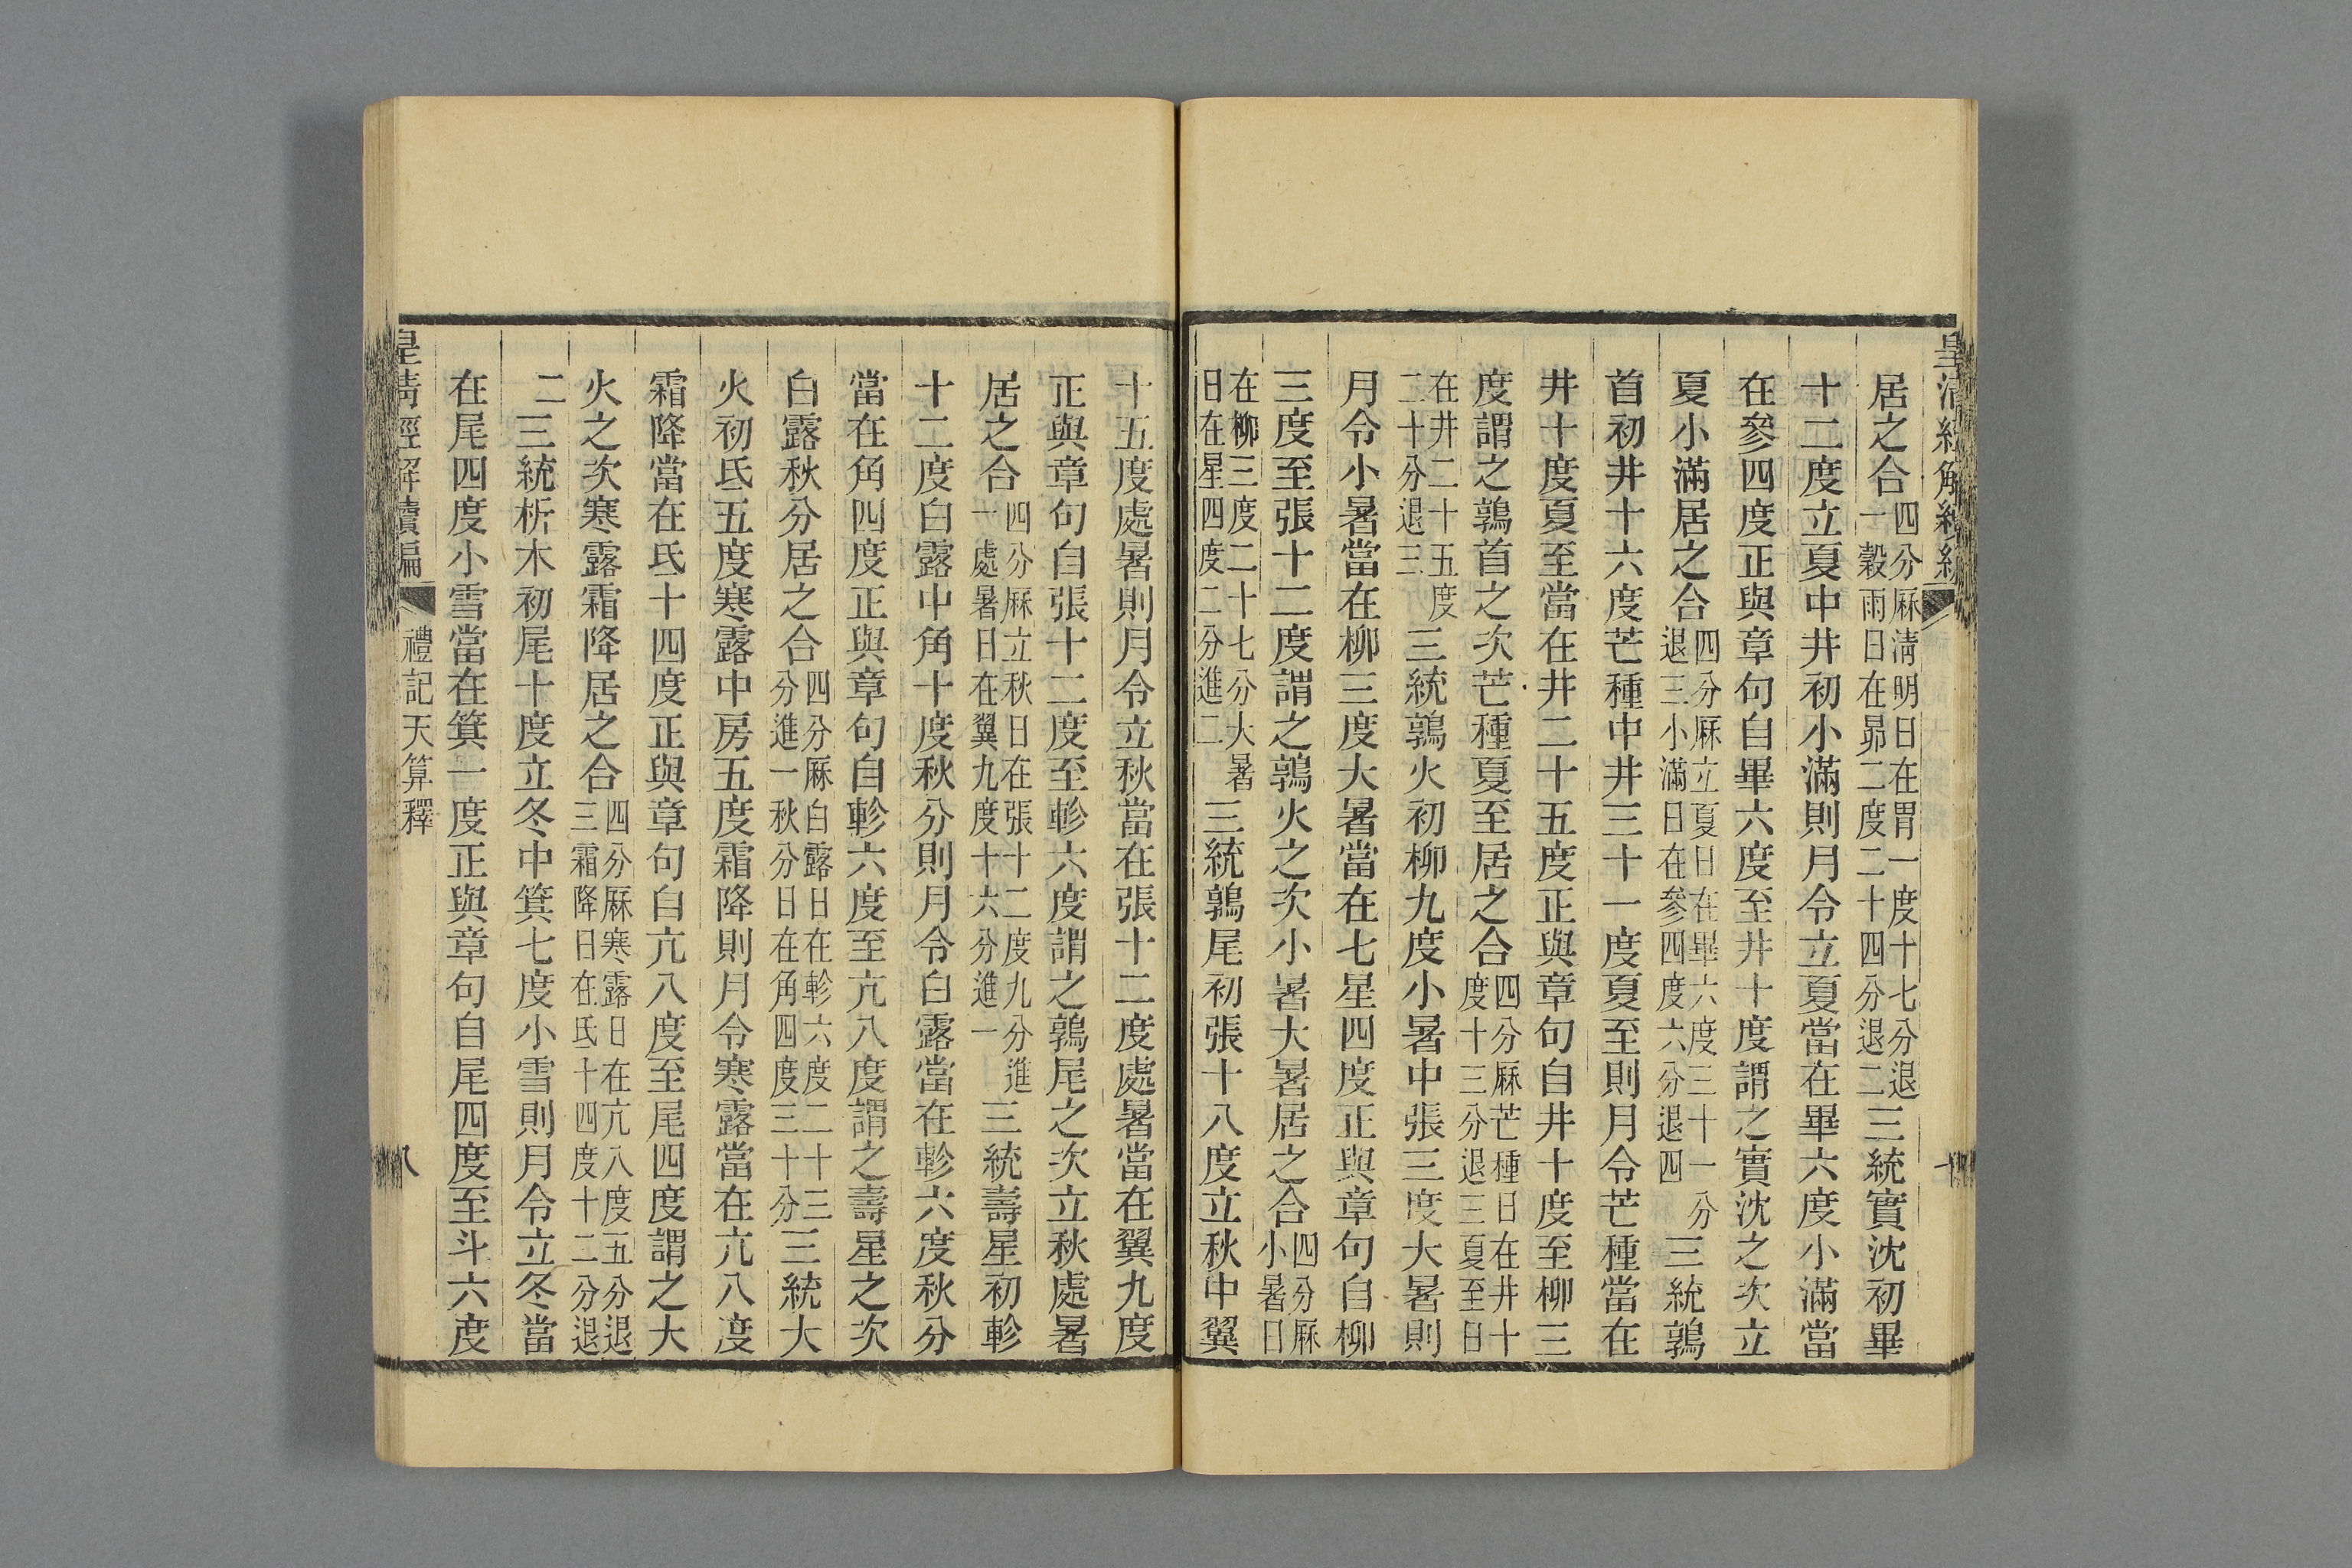 居之合四分厤清明日在胃一度十七分退一穀雨日在昴二度二十四分退二三統實沈初畢
十二度立夏中井初小滿則月令立夏當在畢六度小滿當
在參四度正與章句自畢六度至井十度謂之實沈之次立
夏小滿居之合四分厤立夏日在畢六度三十一分退三小滿日在參四度六分退四三統鶉
首初井十六度芒種中井三十一度夏至則月令芒種當在
井十度夏至當在井二十五度正與章句自井十度至柳三
度謂之鶉首之次芒種夏至居之合四分厤芒種日在井十度十三分退三夏至日
在井二十五度二十分退三三統鶉火初柳九度小暑中張三度大暑則
月令小暑當在柳三度大暑當在七星四度正與章句自柳
三度至張十二度謂之鶉火之次小暑大暑居之合四分厤小暑日
在柳三度二十七分大暑日在星四度二分進二三統鶉尾初張十八度立秋中翼
十五度處暑則月令立秋當在張十二度處暑當在翼九度
正與章句自張十二度至軫六度謂之鶉尾之次立秋處暑
居之合四分厤立秋日在張十二度九分進一處暑日在翼九度十六分進一三統壽星初軫
十二度白露中角十度秋分則月令白露當在軫六度秋分
當在角四度正與章句自軫六度至亢八度謂之壽星之次
白露秋分居之合四分厤白露日在軫六度二十三分進一秋分日在角四度三十分三統大
火初氐五度寒露中房五度霜降則月令寒露當在亢八度
霜降當在氐十四度正與章句自亢八度至尾四度謂之大
火之次寒露霜降居之合四分厤寒露日在亢八度五分退三霜降日在氐十四度十二分退
二三統析木初尾十度立冬中箕七度小雪則月令立冬當
在尾四度小雪當在箕一度正與章句自尾四度至斗六度
皇清經解續編 禮記天算釋 八